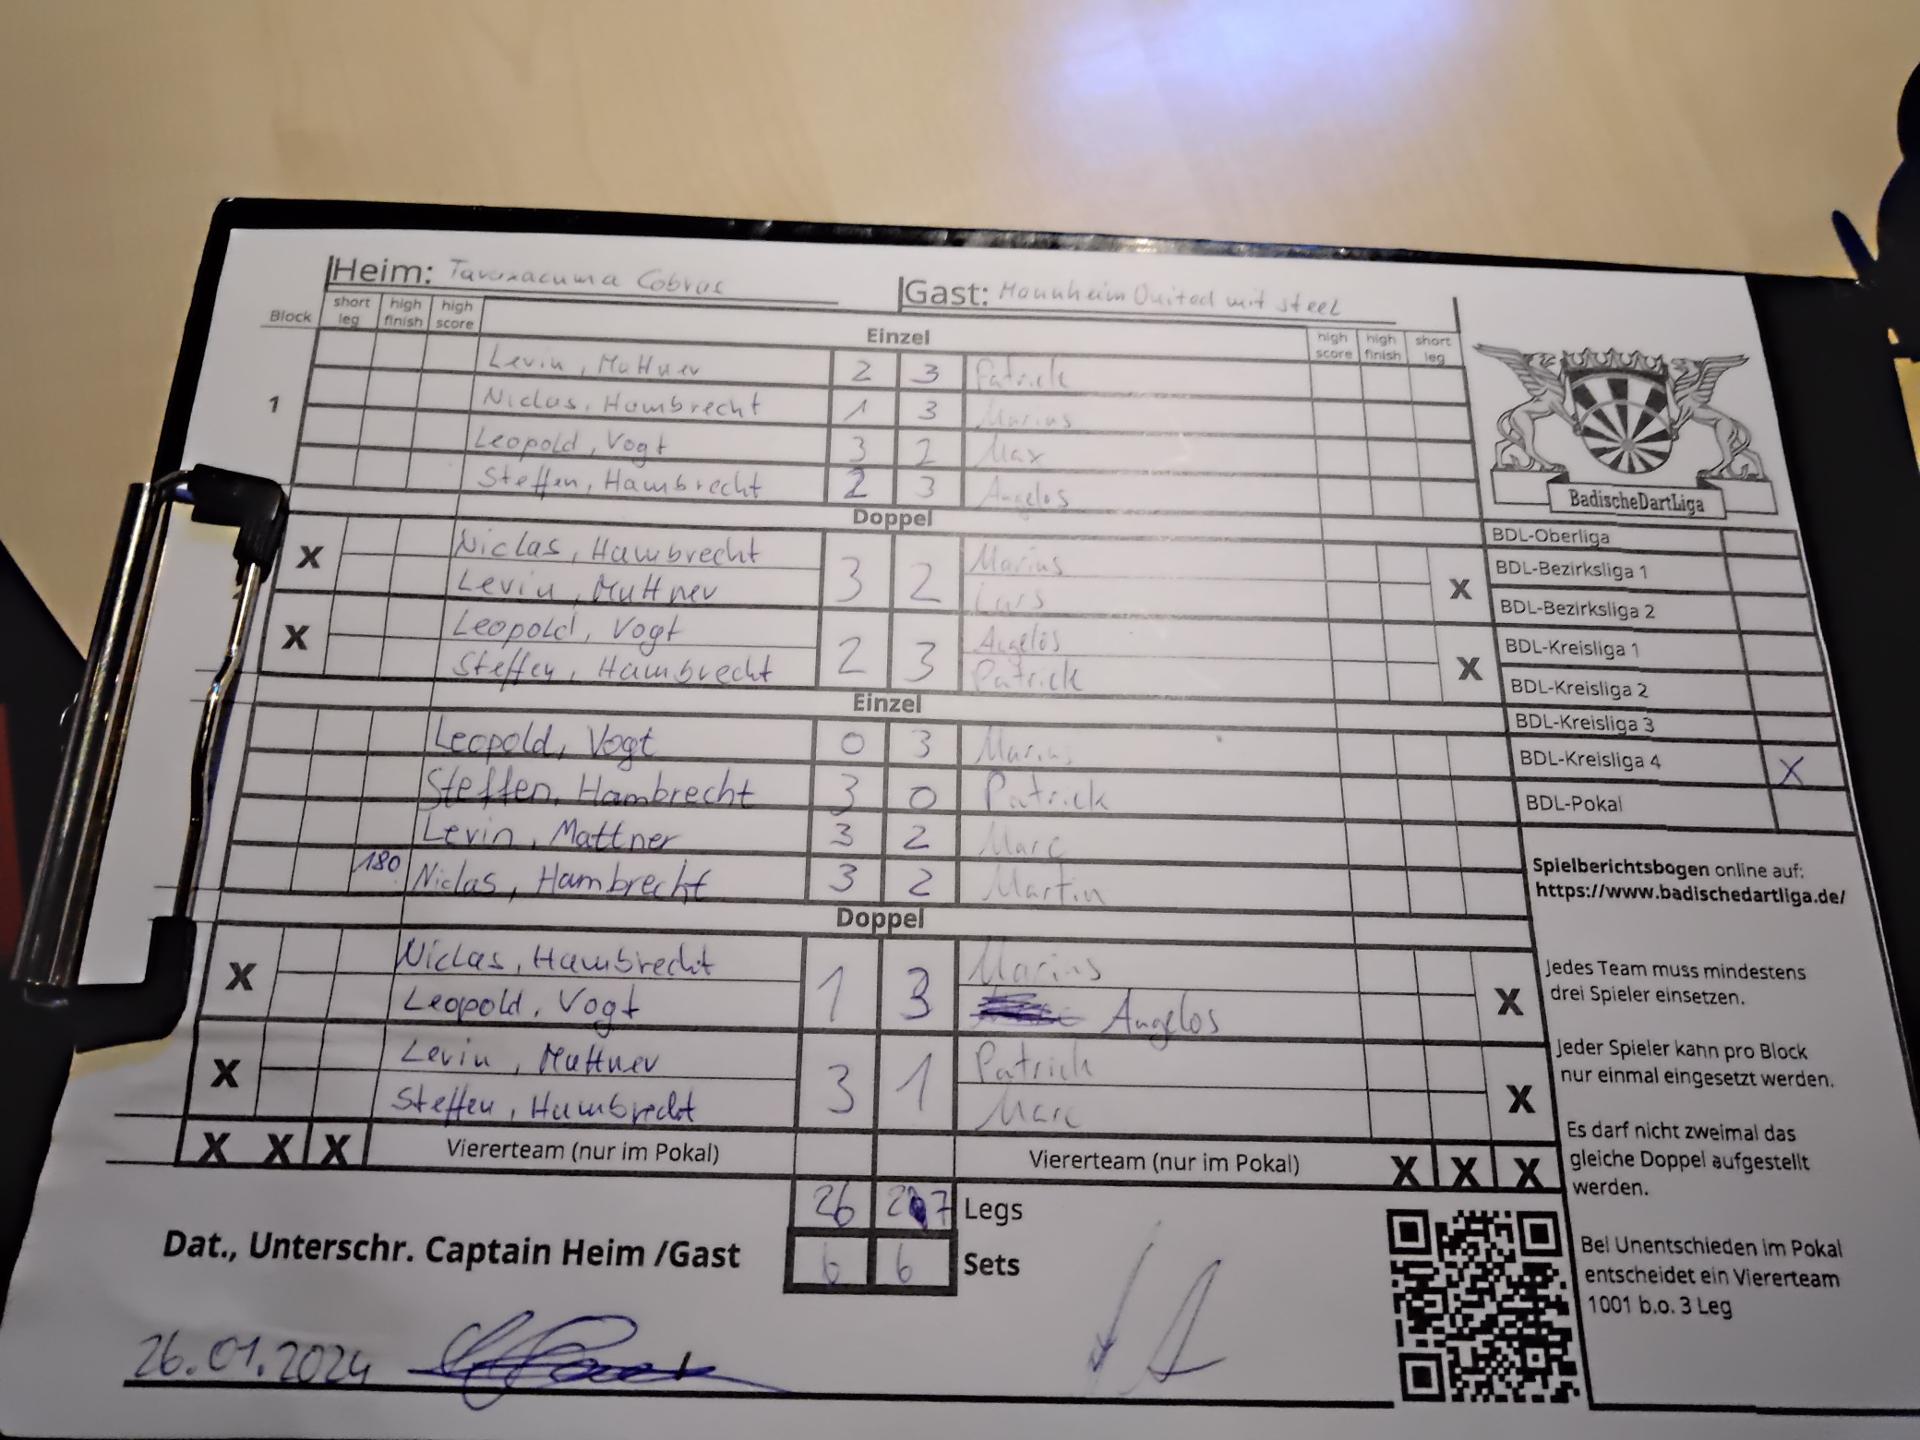 Heim: Tavernacuma Cobras
Gast: Mannheim United mit Steel
Block short leg high finish high score Einzel high score high finish short leg
Levin, Mattner 2 3 Patrick
1 Niclas, Hambrecht 1 3 Marius
Leopold, Vogt 3 2 Max
Steffen, Hambrecht 2 3 Angelos
Doppel
X Niclas, Hambrecht 3 2 Marius X
Levin, Mattner Lars
X Leopold, Vogt 2 3 Angelos X
Steffen, Hambrecht Patrick
Einzel
Leopold, Vogt 0 3 Marius
Steffen, Hambrecht 3 0 Patrick
Levin, Mattner 3 2 Marc
180 Niclas, Hambrecht 3 2 Martin
Doppel
X Niclas, Hambrecht 1 3 Marius X
Leopold, Vogt Angelos
X Levin, Mattner 3 1 Patrick X
Steffen, Hambrecht Marc
X X X Viererteam (nur im Pokal) Viererteam (nur im Pokal) X X X
26 27 Legs
6 6 Sets
Dat., Unterschr. Captain Heim /Gast
26.01.2024
BadischeDartLiga
BDL-Oberliga
BDL-Bezirksliga 1
BDL-Bezirksliga 2
BDL-Kreisliga 1
BDL-Kreisliga 2
BDL-Kreisliga 3
BDL-Kreisliga 4 X
BDL-Pokal
Spielberichtsbogen online auf:
https://www.badischedartliga.de/
Jedes Team muss mindestens
drei Spieler einsetzen.
Jeder Spieler kann pro Block
nur einmal eingesetzt werden.
Es darf nicht zweimal das
gleiche Doppel aufgestellt
werden.
Bei Unentschieden im Pokal
entscheidet ein Viererteam
1001 b.o. 3 Leg